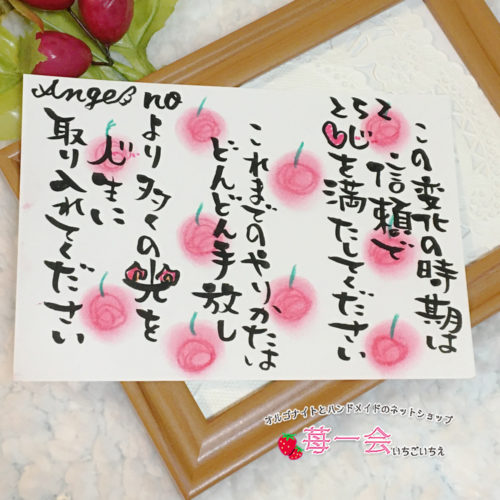 Angel no
252
この変化の時期は
信頼で
心を満たしてください
これまでのやりかたは、
どんどん手放し
より多くの光を
人生に
取り入れてください
オルゴナイトとハンドメイドのネットショップ
苺一会 いちごいちえ